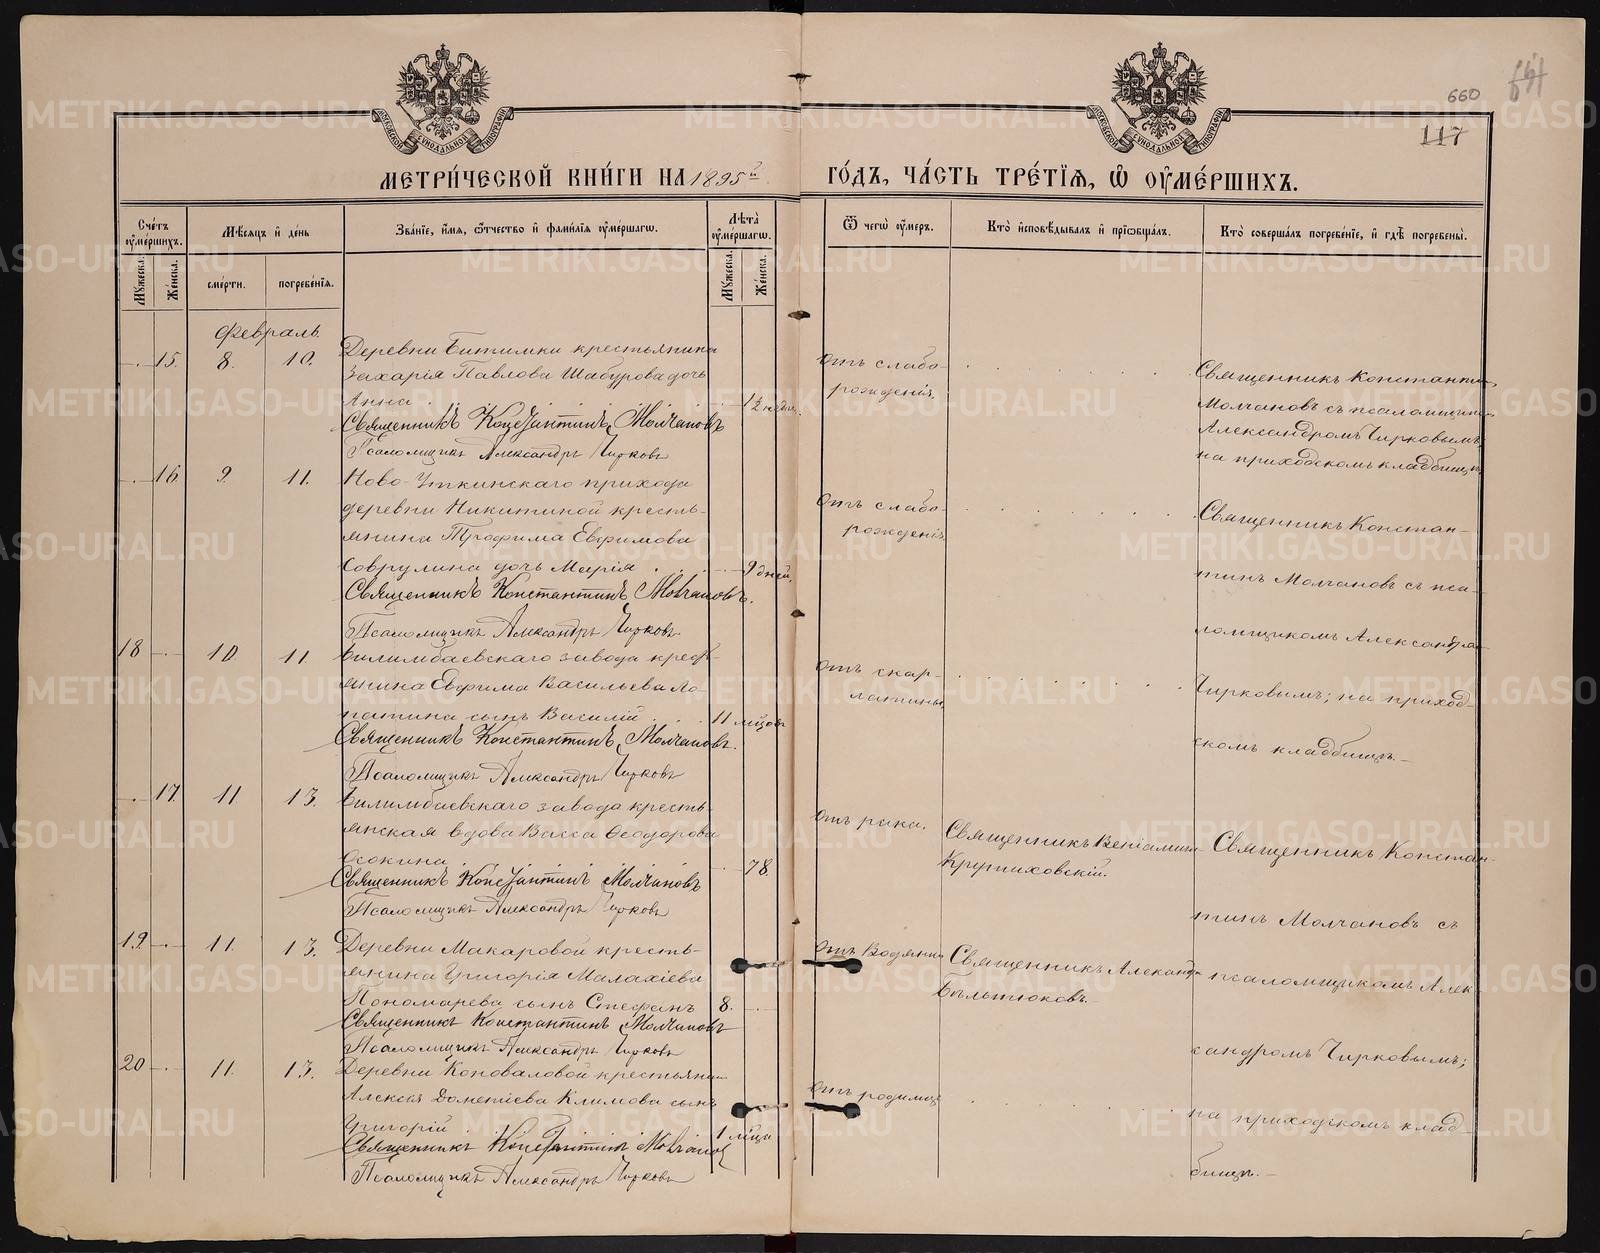 660
117
МЕТРИ́ЧЕСКОЙ КНИ́ГИ НА 1895й ГО́ДЪ, ЧА́СТЬ ТРЕ́ТІѦ, Ѡ ОУМЕ́РШИХЪ.
Сче́тъ оуме́ршихъ.
Мѣсяцъ и де́нь
Зва́ніе, и́мя, ѻ́тчество и фами́лія оуме́ршагѡ.
Лѣта̀ оуме́ршагѡ.
Ѿ чегѡ̀ оу́меръ.
Кто̀ исповѣ́дывалъ и пріѡбща́лъ.
Кто̀ соверша́лъ погребе́ніе, и гдѣ̀ погребены̀.
Му́жеска.
Же́нска.
сме́рти.
погребе́нія.
Му́жеска.
Же́нска.
Февраль.
15. 8. 10.
Деревни Битимки крестьянина
Захарія Павлова Шабурова дочь
Анна
12 недѣль.
Священникъ Константинъ Молчановъ
Псаломщикъ Александръ Чирковъ
отъ слабо-
рожденія.
Священникъ Константинъ
Молчановъ съ псаломщикомъ
Александромъ Чирковымъ,
на приходскомъ кладбищѣ.
16 9. 11.
Ново-Уткинскаго прихода
деревни Никитиной кресть-
янина Трофима Евфимова
Соврулина дочь Марія
9 дней.
Священникъ Константинъ Молчановъ.
Псаломщикъ Александръ Чирковъ.
отъ слабо-
рожденія.
Священникъ Констан-
тинъ Молчановъ съ пса-
ломщикомъ Александромъ
Чирковымъ; на приход-
скомъ кладбищѣ.-
18 10. 11.
Билимбаевскаго завода кресть-
янина Евфима Васильева Ло-
патина сынъ Василій
11 мѣсцовъ
Священникъ Константинъ Молчановъ.
Псаломщикъ Александръ Чирковъ
отъ скар-
латины
17. 11 13.
Билимбаевскаго завода кресть-
янская вдова Васса Ѳеодорова
Осокина
78.
Священникъ Константинъ Молчановъ
Псаломщикъ Александръ Чирковъ
отъ рака.
Священникъ Веніаминъ
Крутиховскій.
Священникъ Констан-
тинъ Молчановъ съ
псаломщикомъ Алек-
сандромъ Чирковымъ;
на приходскомъ клад-
бищѣ.-
19. 11. 13.
Деревни Макаровой кресть-
янина Григорія Малахіева
Пономарева сынъ Стефанъ
8.
Священникъ Константинъ Молчановъ
Псаломщикъ Александръ Чирковъ
отъ Водянки
Священникъ Александръ
Бѣльтюковъ.
20 11. 13.
Деревни Коноваловой крестьянина
Алексія Дометіева Климова сынъ
Григорій
1 мѣсца
Священникъ Константинъ Молчановъ
Псаломщикъ Александръ Чирковъ
отъ родимца
METRIKI.GASO-URAL.RU